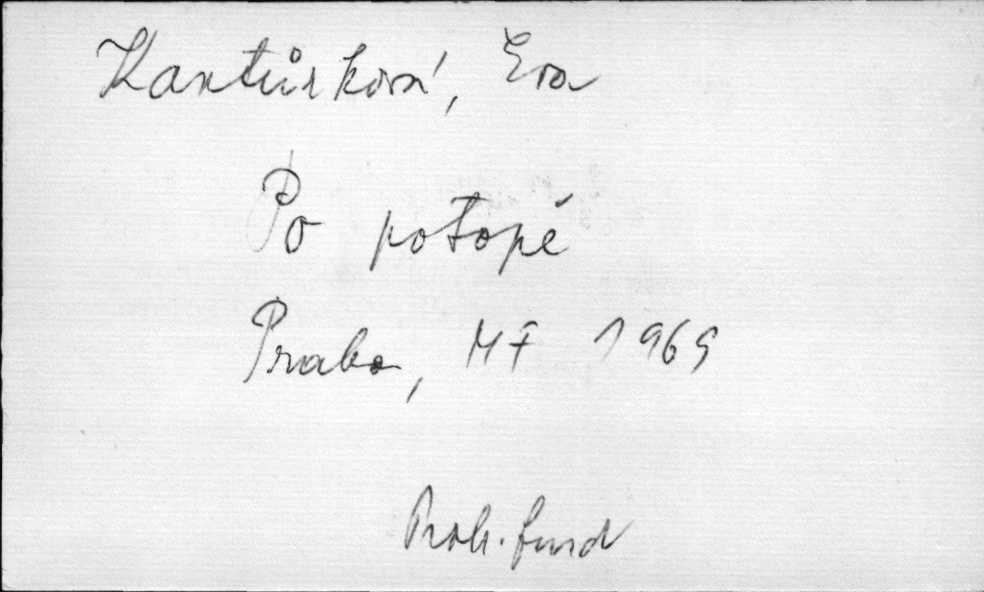 Kantůrková, Eva
Po potopě
Praha, MF 1969
Proh. fund